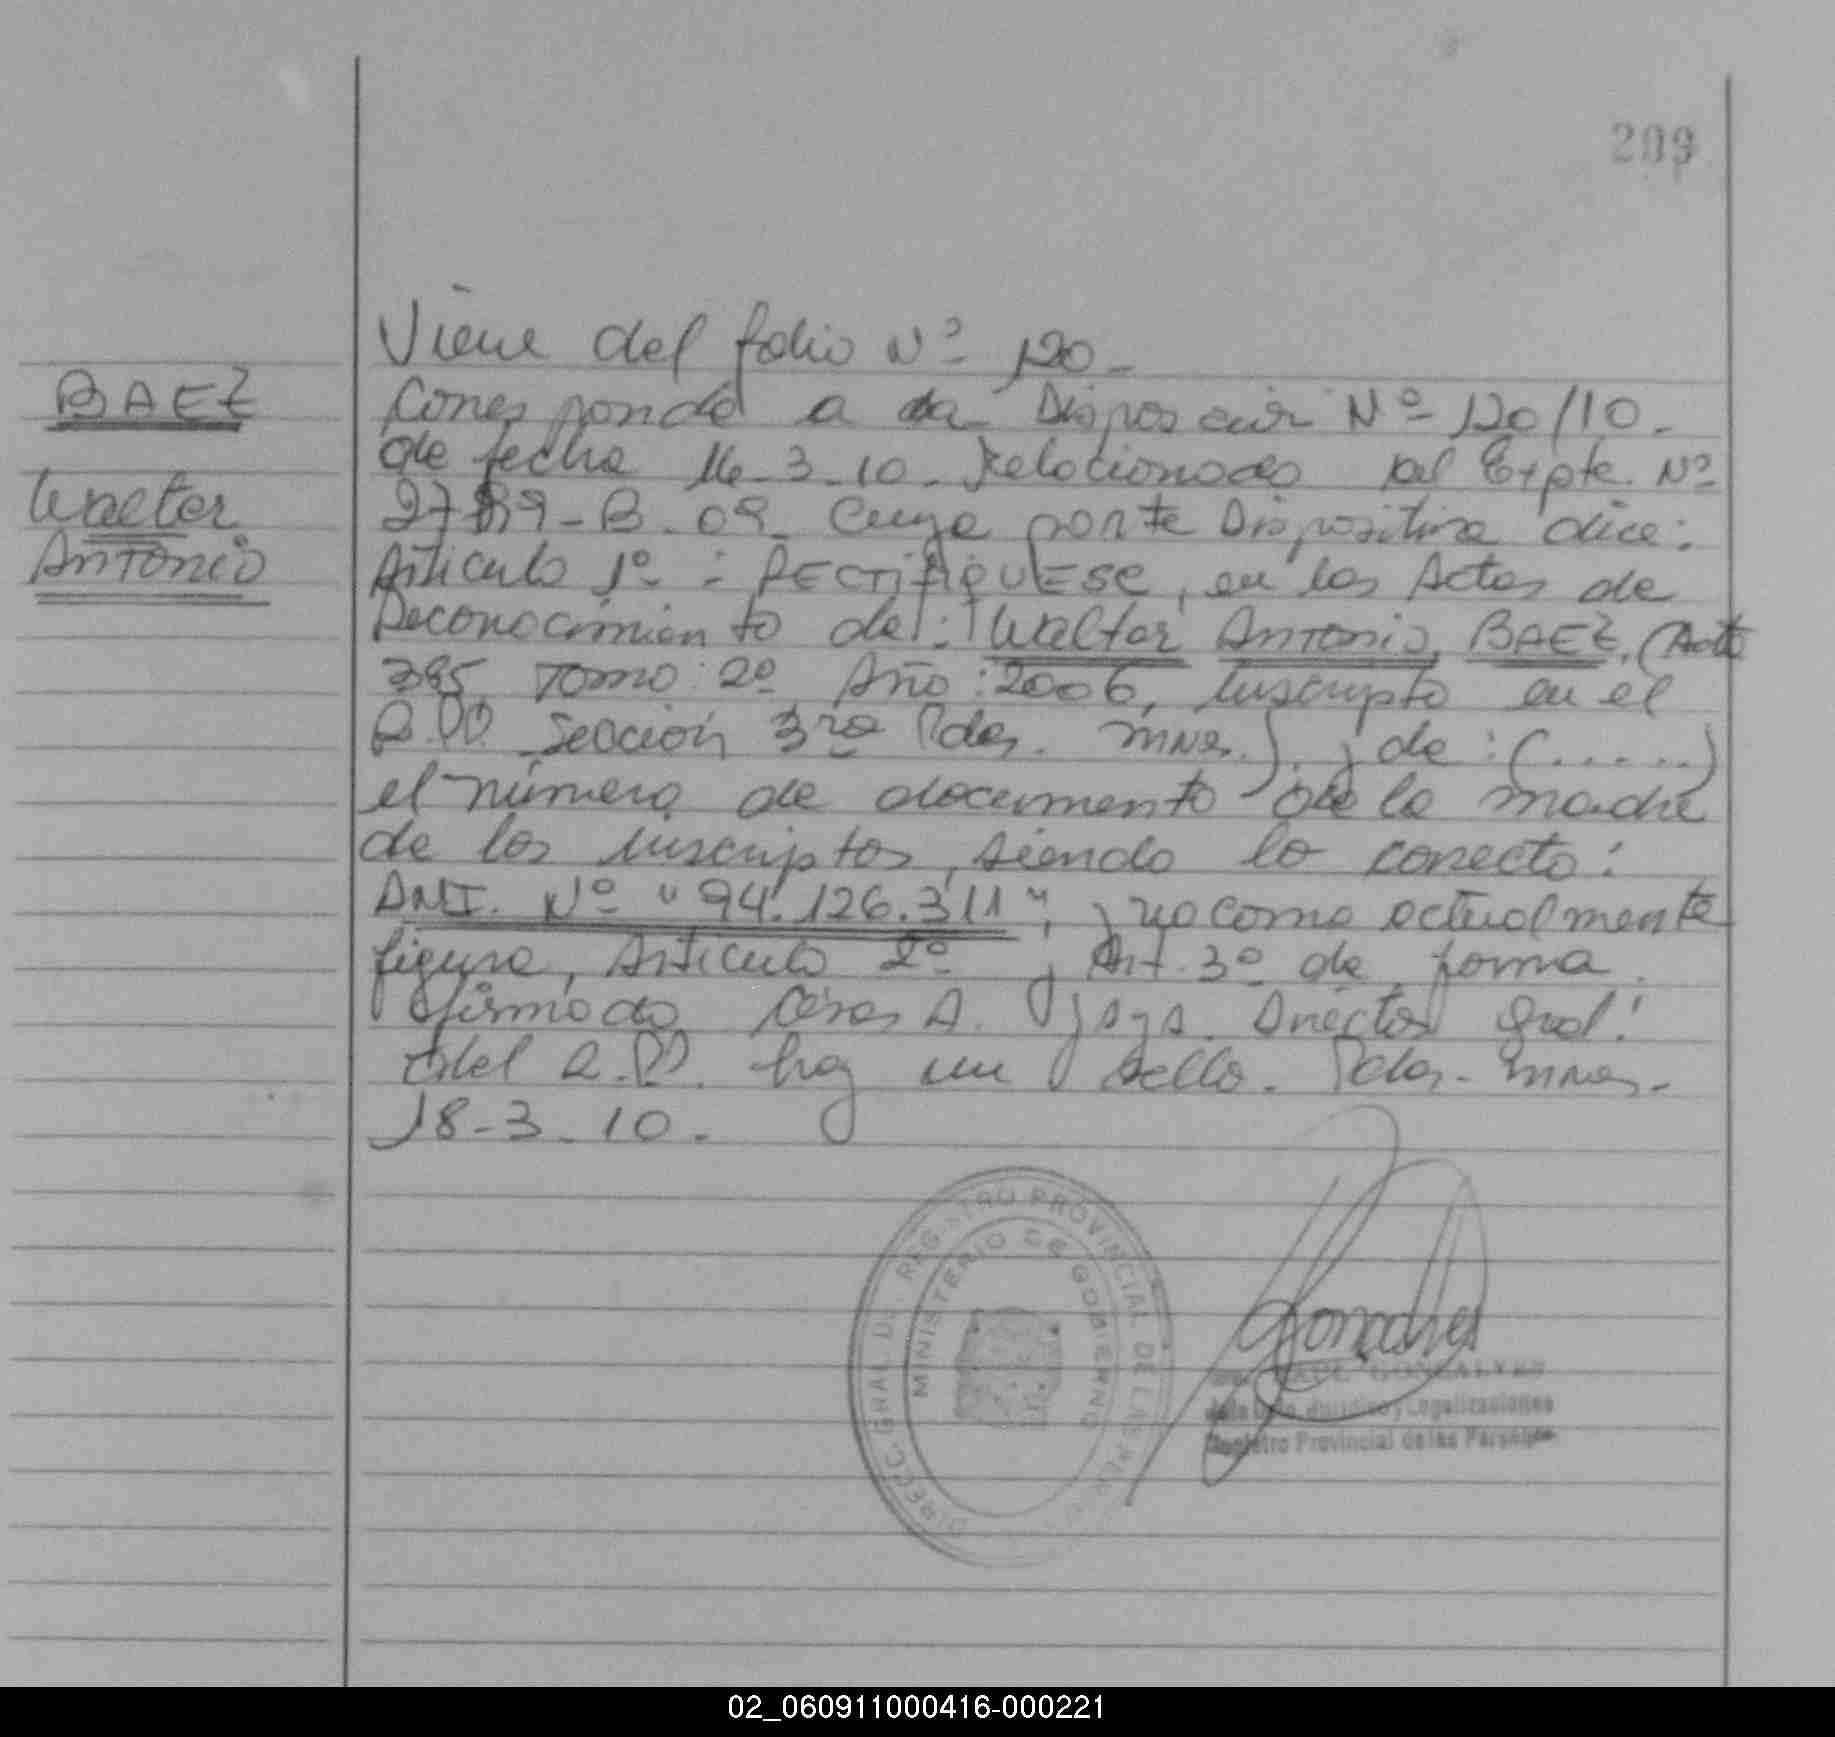 209
Viene del folio Nº 120.
BAEZ
Corresponde a la Disposición Nº 120/10.
de fecha 16-3-10. Relacionado al Expte. Nº
Walter
2789-B-09. Cuya parte Dispositiva dice:
Antonio
Articulo 1º: RECTIFIQUESE, en las Actas de
Reconocimiento de: Walter Antonio BAEZ, (Acta
385, Tomo: 2º Año: 2006, Inscripto en el
R.P.P. Sección 3ra Pdas. Mnes.), y de: (.....)
el número de documento de la madre
de los inscriptos, siendo lo correcto:
DNI. Nº "94.126.311", y no como actualmente
figura, Articulo 2º y Art. 3º de forma.
firmado César A. Director Gral.
del R.P.P. hay un sello. Pdas. Mnes.
18-3-10.
DIRECC. GRAL. DEL REGISTRO PROVINCIAL DE LAS PER
MINISTERIO DE GOBIERNO
GONSALVES
y Legalizaciones
Registro Provincial de las Personas
02_060911000416-000221